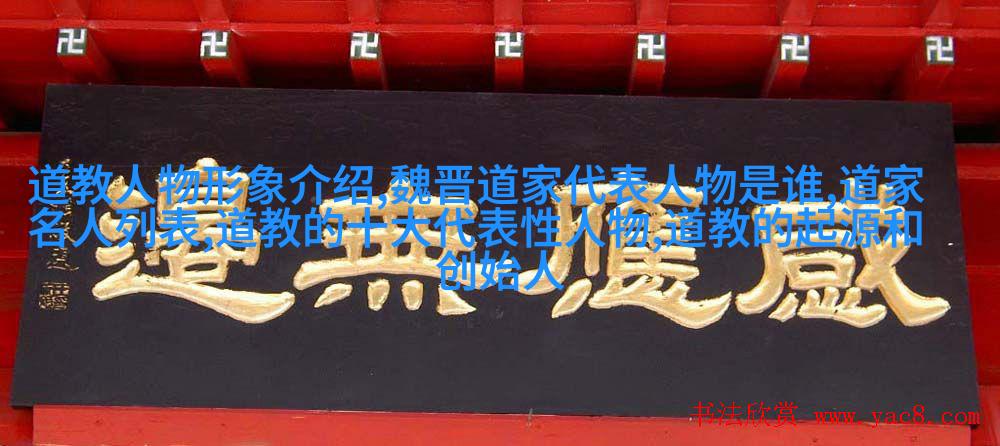 道教人物形象介绍,魏晋道家代表人物是谁,道家
名人列表,道教的十大代表性人物,道教的起源和
创始人
感應無邊
书法欣赏 www.yac8.com